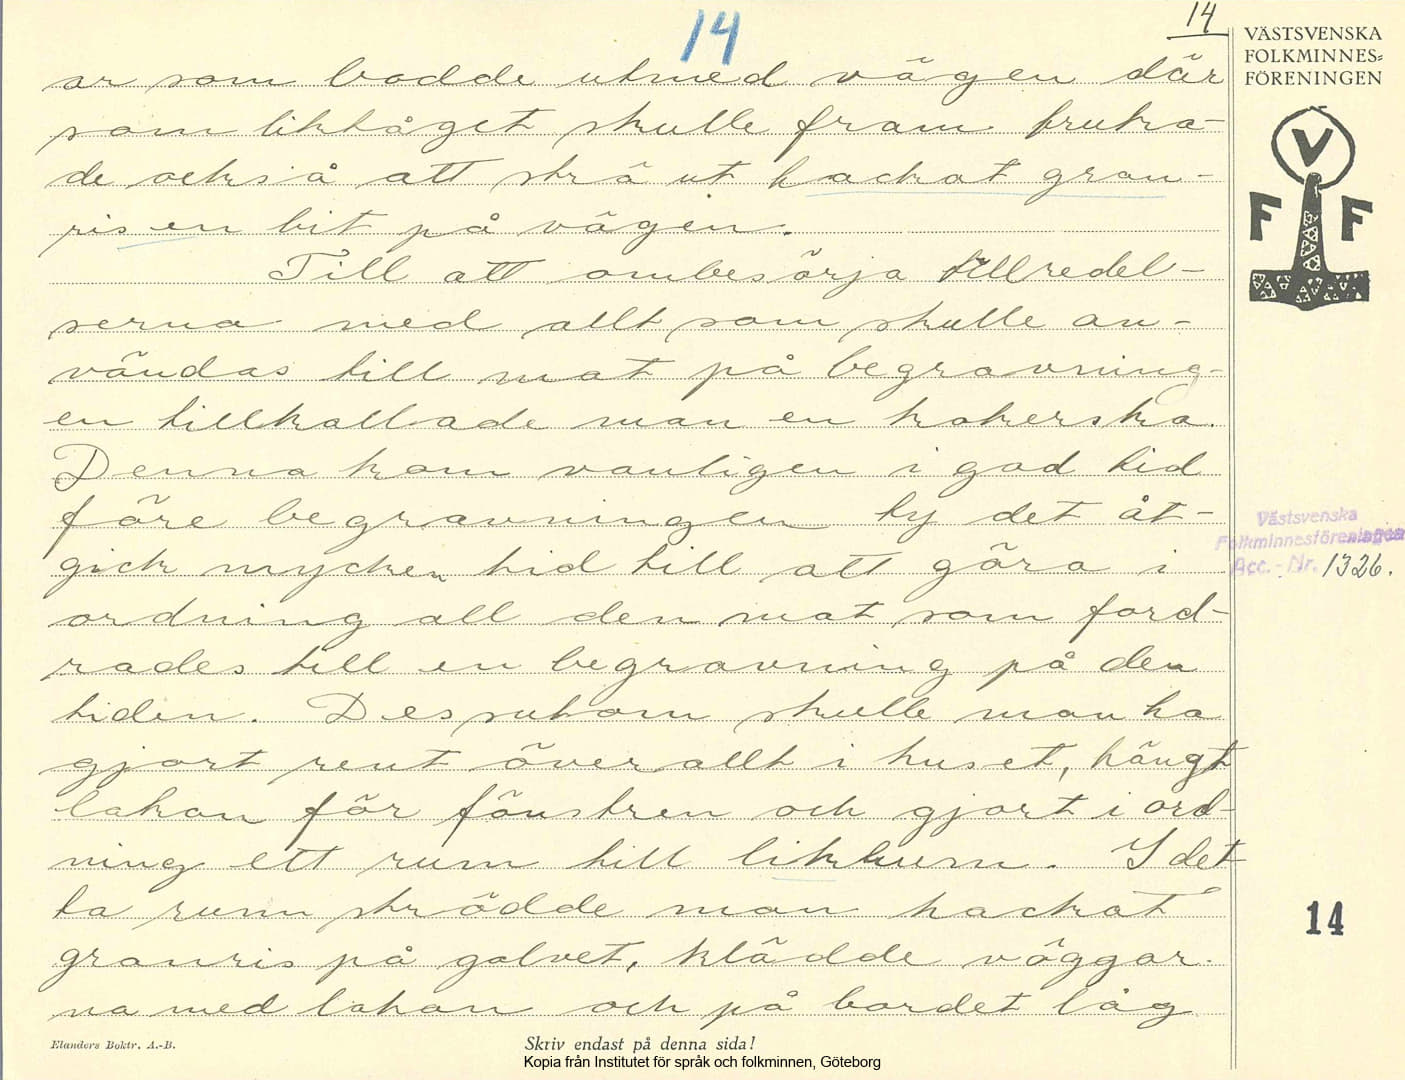 14
14
VÄSTSVENSKA
FOLKMINNES=
FÖRENINGEN
V
F F
ar som bodde utmed vägen där
som liktåget skulle fram bruka-
de också att strö ut hackat gran-
ris en bit på vägen.
Till att ombesörja tillredel-
serna med allt som skulle an-
vändas till mat på begravning-
en tillkallade man en kokerska.
Denna kom vanligen i god tid
före begravningen ty det åt-
gick mycken tid till att göra i
ordning all den mat som ford-
rades till en begravning på den
tiden. Dessutom skulle man ha
gjort rent överallt i huset, hängt
lakan för fönstren och gjort i ord-
ning ett rum till likrum. I det-
ta rum strödde man hackat
granris på golvet, klädde väggar-
na med lakan och på bordet låg
Västsvenska
Folkminnesföreningen
Acc.-Nr. 1326.
14
Elanders Boktr. A.-B.
Skriv endast på denna sida!
Kopia från Institutet för språk och folkminnen, Göteborg